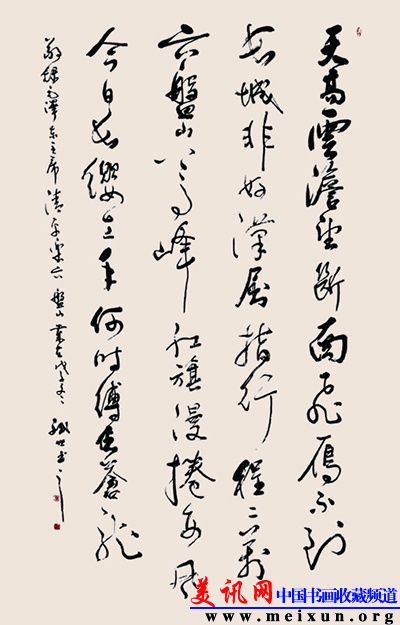 天高雲澹望斷南飛雁不到
長城非好漢屈指行程二萬
六盤山上高峰紅旗漫捲西風
今日長纓在手何時縛住蒼龍
敬錄毛澤東主席清平樂六盤山歲在戊子冬書
美讯网 中国书画收藏频道
www.meixun.org